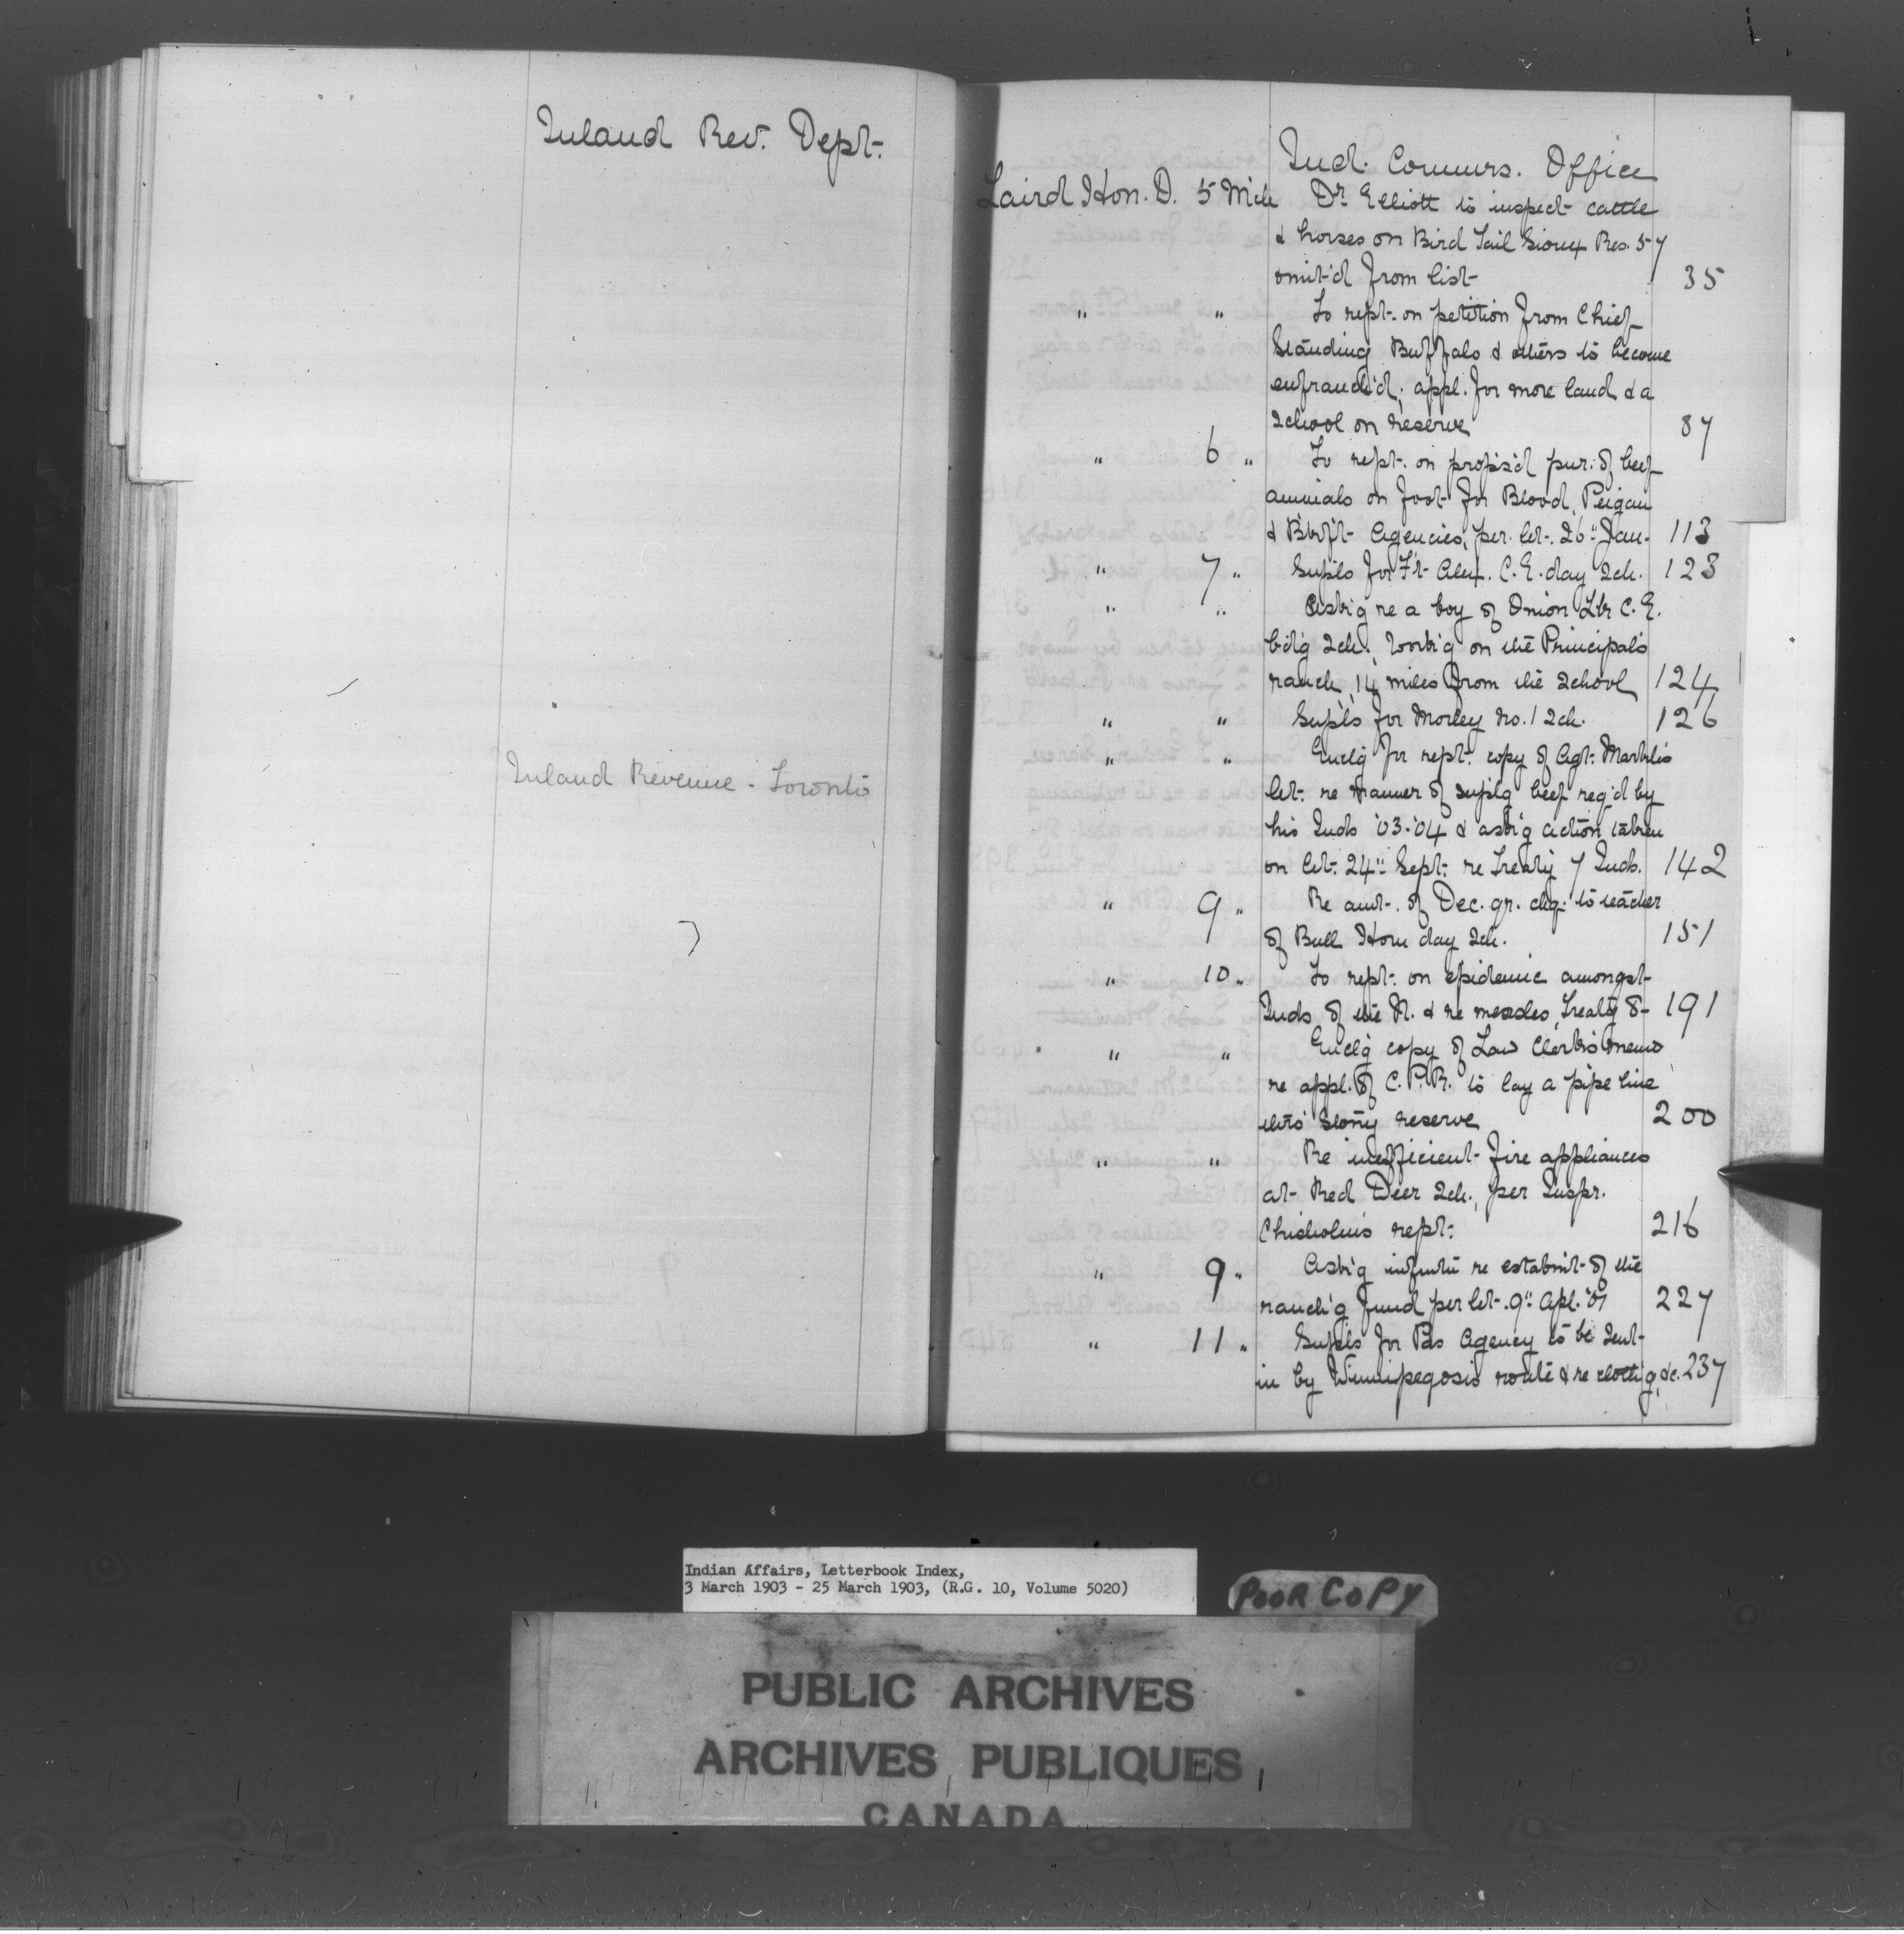 Inland Rev. Dept.
Inland Revenue - Toronto
Ind. Commrs. Office
Laird Hon. D. 5 Mch Dr Elliott to inspect cattle
& horses on Bird Tail Sioux Res. 57
omit'd from list 35
" " To rept. on petition from Chief
Standing Buffalo & others to become
enfranch'd; appl. for more land & a
school on reserve 87
" 6 " To rept. on propos'd pur. of beef
animals on foot for Blood, Peigan
& Blkf't Agencies, per let. 26" Jan. 113
" 7 " Suplo for F't Alex. C.E. day Sch. 123
" " Ask'g re a boy of Onion Lke C.E.
bd'g Sch. work'g on the Principal's
ranch, 14 miles from the School 124
" " Supls for Morley No. 1 Sch. 126
" " Enclg for rept. copy of Agt. Markle's
let. re manner of suplg beef req'd by
his Inds '03-'04 & ask'g action taken
on let. 24" Sept. re Treaty 7 Inds. 142
" 9 " Re amt. of Dec. qr. chq. to teacher
of Bull Horn day Sch. 151
" 10 " To rept. on epidemic amongst
Inds of the N. & re measles, Treaty 8 - 191
" " Enclg copy of Law Clerk's memo
re appl. of C.P.R. to lay a pipe line
thro' Stony reserve 200
" " Re inefficient fire appliances
at Red Deer Sch., per Inspr.
Chisholm's rept. 216
" 9 " Ask'g infmtn re establmt of the
ranch'g fund per let. 9" Apl. '01 227
" 11 " Supls for Pas Agency to be sent
in by Winnipegosis route & re cloth'g, &c. 237
Indian Affairs, Letterbook Index,
3 March 1903 - 25 March 1903, (R.G. 10, Volume 5020)
POOR COPY
PUBLIC ARCHIVES
ARCHIVES PUBLIQUES
CANADA